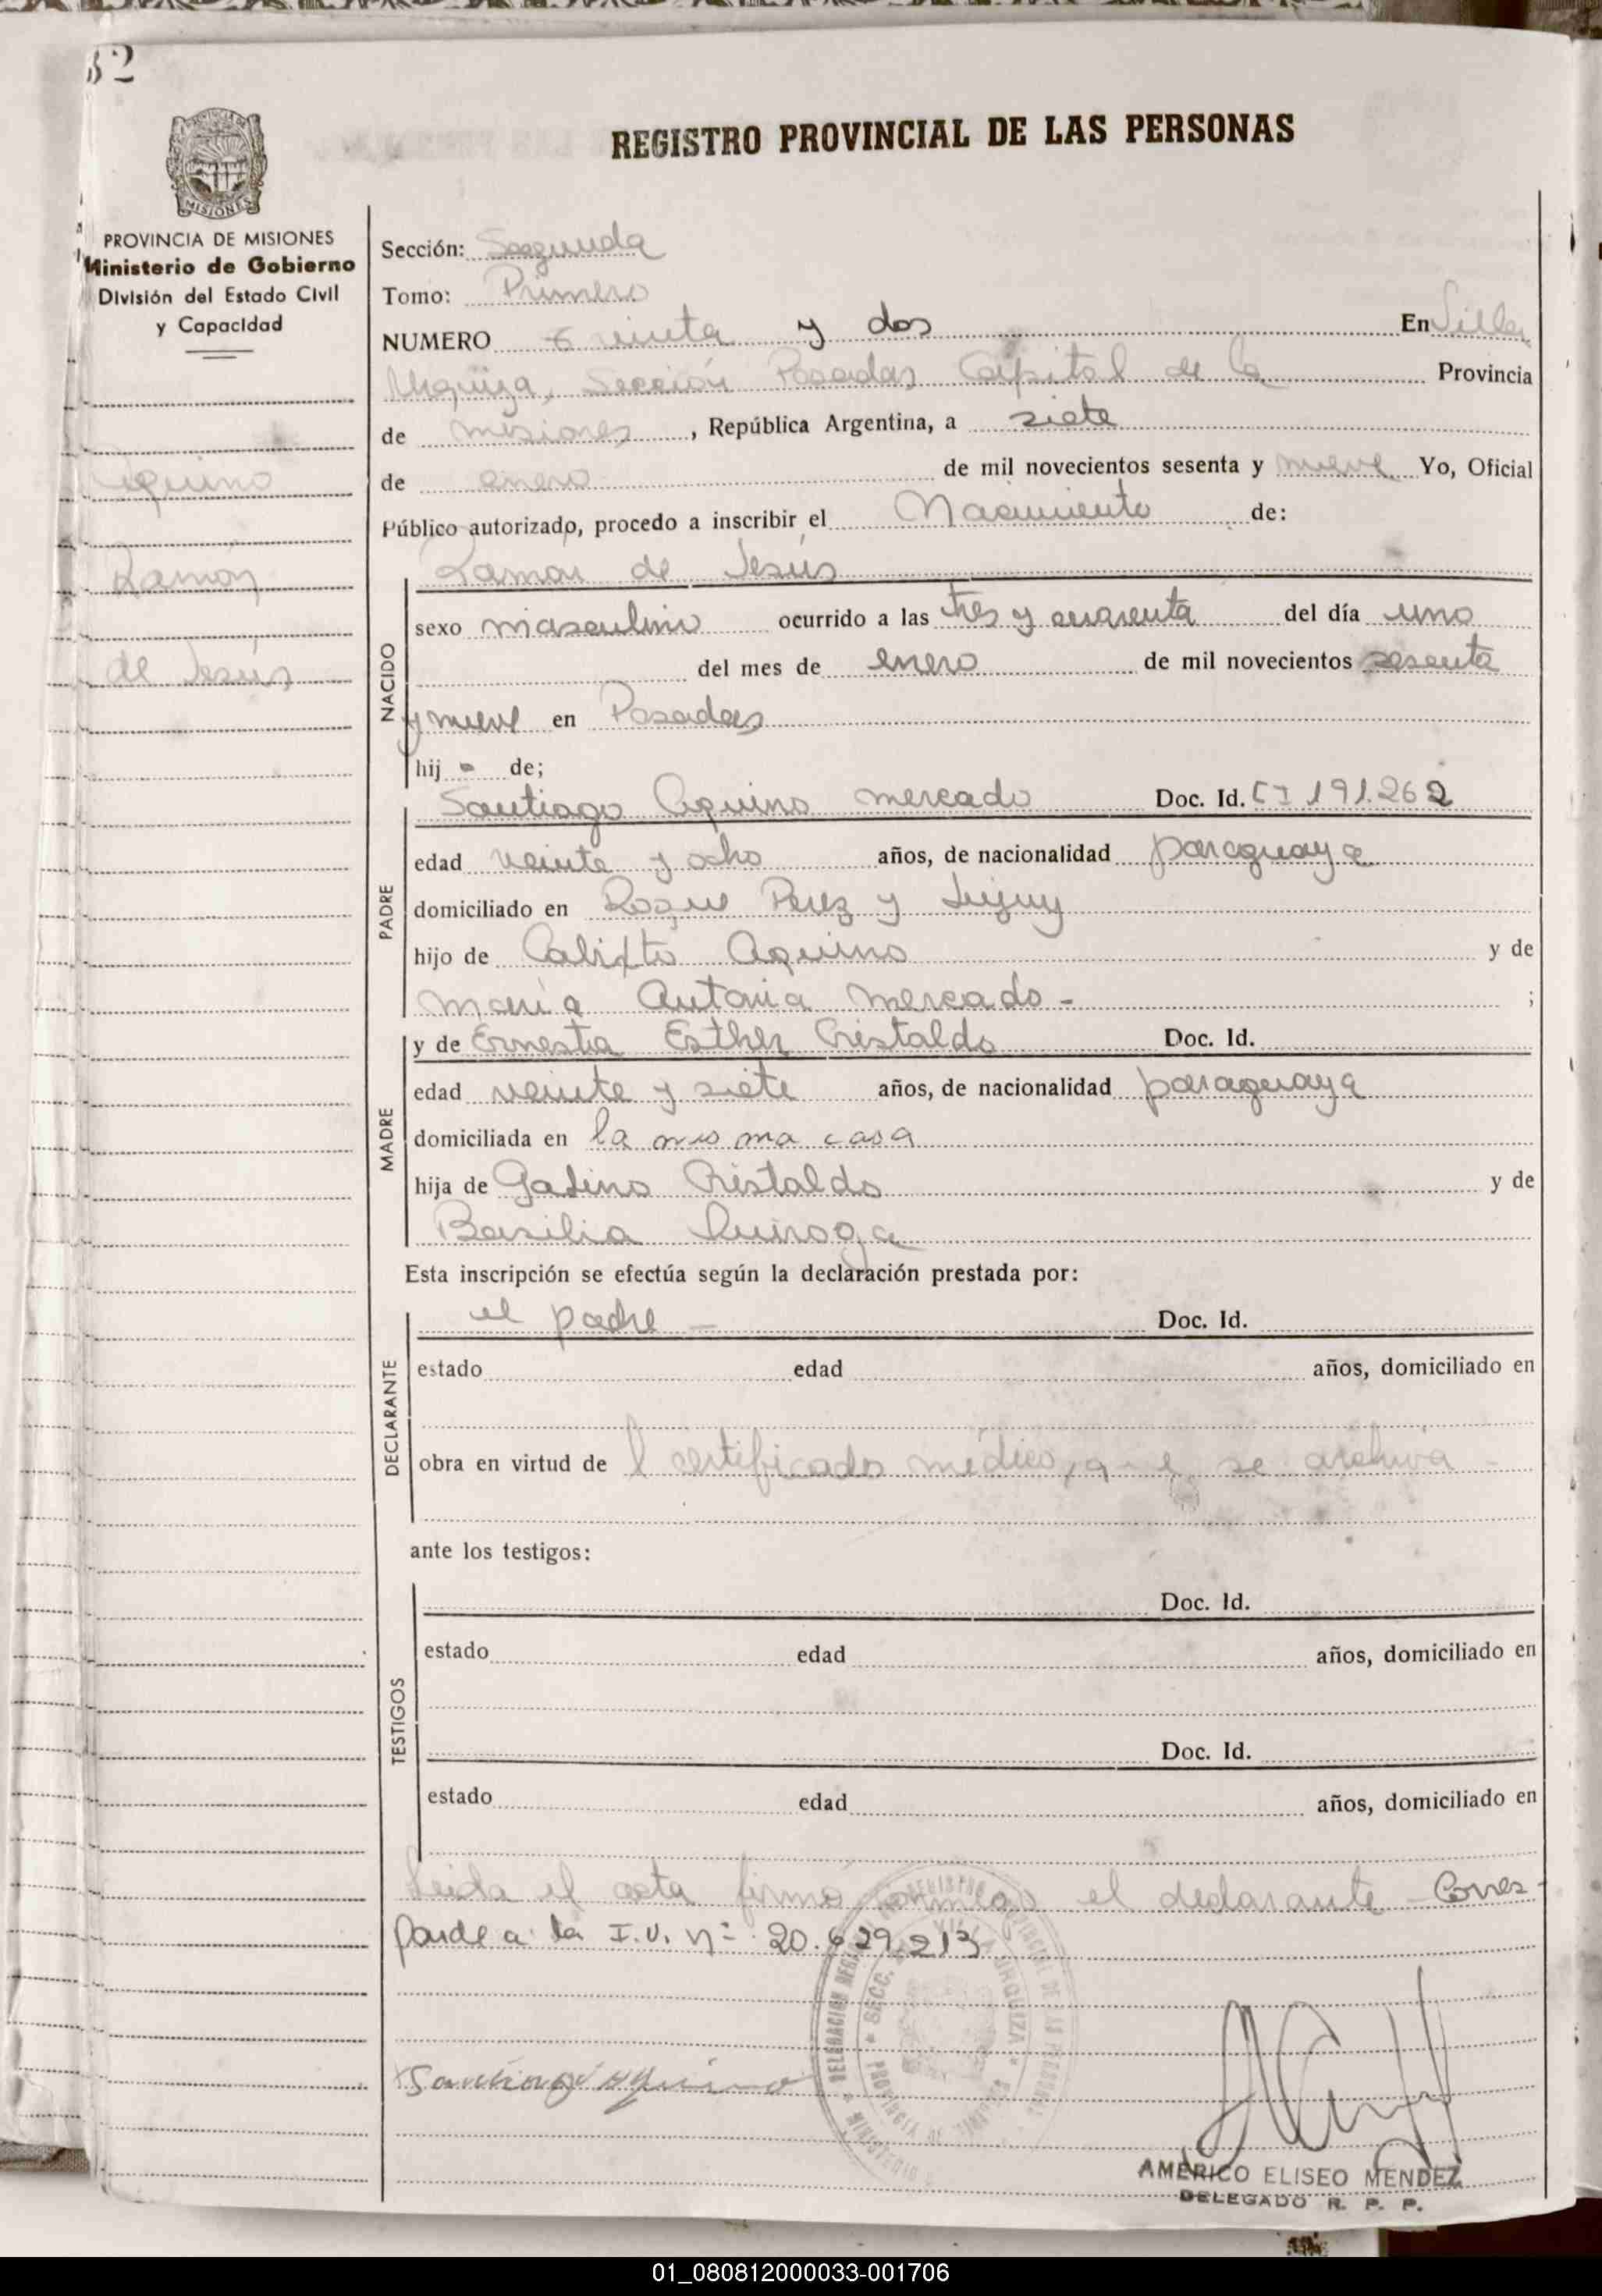 32
REGISTRO PROVINCIAL DE LAS PERSONAS
MISIONES
PROVINCIA DE MISIONES
Ministerio de Gobierno
División del Estado Civil
y Capacidad
Aquino
Ramón
de Jesús
Sección: Segunda
Tomo: Primero
NUMERO treinta y dos En Villa
Urquiza, Sección Posadas Capital de la Provincia
de misiones, República Argentina, a siete
de enero de mil novecientos sesenta y nueve Yo, Oficial
Público autorizado, procedo a inscribir el Nacimiento de:
NACIDO
Ramón de Jesús
sexo masculino ocurrido a las tres y cuarenta del día uno
del mes de enero de mil novecientos sesenta
y nueve en Posadas
hij - de;
PADRE
Santiago Aquino mercado Doc. Id. CI 191.262
edad veinte y ocho años, de nacionalidad paraguaya
domiciliado en Roque Perez y Jujuy
hijo de Calixto Aquino y de
maría Antonia mercado - ;
MADRE
y de Ernestia Esther Cristaldo Doc. Id.
edad veinte y siete años, de nacionalidad paraguaya
domiciliada en la misma casa
hija de Gabino Cristaldo y de
Basilia Quiroga
Esta inscripción se efectúa según la declaración prestada por:
DECLARANTE
el padre - Doc. Id.
estado edad años, domiciliado en
obra en virtud de l certificado médico, que se archiva -
ante los testigos:
TESTIGOS
Doc. Id.
estado edad años, domiciliado en
Doc. Id.
estado edad años, domiciliado en
Leida el acta firmó conmigo el declarante - Corres-
ponde a la I.U. nº 20.629.213
Santiago Aquino
AMERICO ELISEO MENDEZ
DELEGADO R. P. P.
01_080812000033-001706